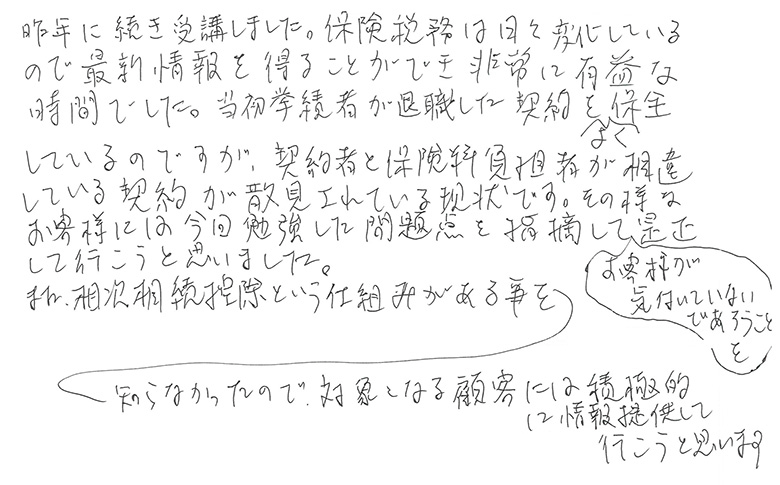 昨年に続き受講しました。保険税務は日々変化している
ので最新情報を得ることができ非常に有益な
時間でした。当初学績者が退職した契約をよく保全
しているのですが、契約者と保険料負担者が相違
している契約が散見されている現状です。その様な
お客様には今回勉強した問題点を指摘して
お客様が
気付いていない
であろうこと
を
是正
して行こうと思いました。
また、相次相続控除という仕組みがある事を
知らなかったので、対象となる顧客には積極的
に情報提供して
行こうと思います